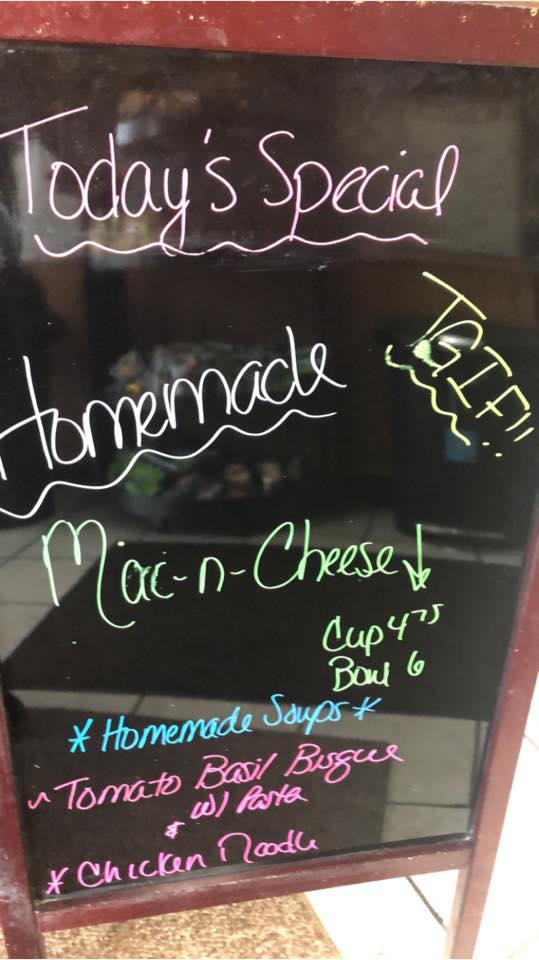 Today's Special
TGIF!!
Homemade
Mac-n-Cheese
Cup 4 75
Bowl 6
* Homemade Soups *
~ Tomato Basil Bisque
w/ Pasta
&
* Chicken Noodle